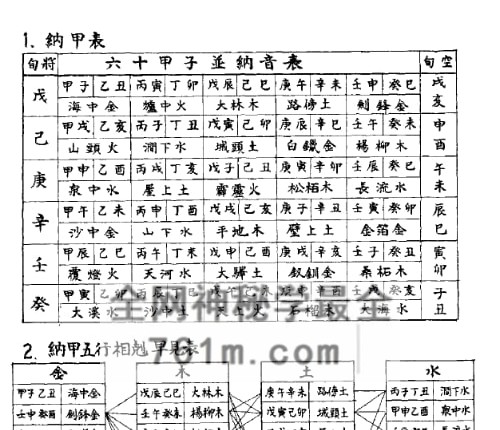 1. 納甲表
旬將 六十甲子並納音表 旬空
戊 甲子 乙丑 丙寅 丁卯 戊辰 己巳 庚午 辛未 壬申 癸巳 戌
海中金 爐中火 大林木 路傍土 劍鋒金 亥
己 甲戌 乙亥 丙子 丁丑 戊寅 己卯 庚辰 辛巳 壬午 癸未 申
山頭火 澗下水 城頭土 白鑞金 楊柳木 酉
庚 甲申 乙酉 丙戌 丁亥 戊子 己丑 庚寅 辛卯 壬辰 癸巳 午
泉中水 屋上土 霹靂火 松柏木 長流水 未
辛 甲午 乙未 丙申 丁酉 戊戌 己亥 庚子 辛丑 壬寅 癸卯 辰
沙中金 山下水 平地木 壁上土 金箔金 巳
壬 甲辰 乙巳 丙午 丁未 戊申 己酉 庚戌 辛亥 壬子 癸丑 寅
覆燈火 天河水 大驛土 釵釧金 桑柘木 卯
癸 甲寅 乙卯 丙辰 丁巳 戊午 己未 庚申 辛酉 壬戌 癸亥 子
大溪水 沙中土 天上火 石榴木 大海水 丑
全网神秘学最全
761m.com
2. 納甲五行相剋早見表
金 木 土 水
甲子乙丑 海中金 戊辰己巳 大林木 庚午辛未 路傍土 丙子丁丑 澗下水
壬申癸酉 劍鋒金 壬午癸未 楊柳木 戊寅己卯 城頭土 甲申乙酉 泉中水